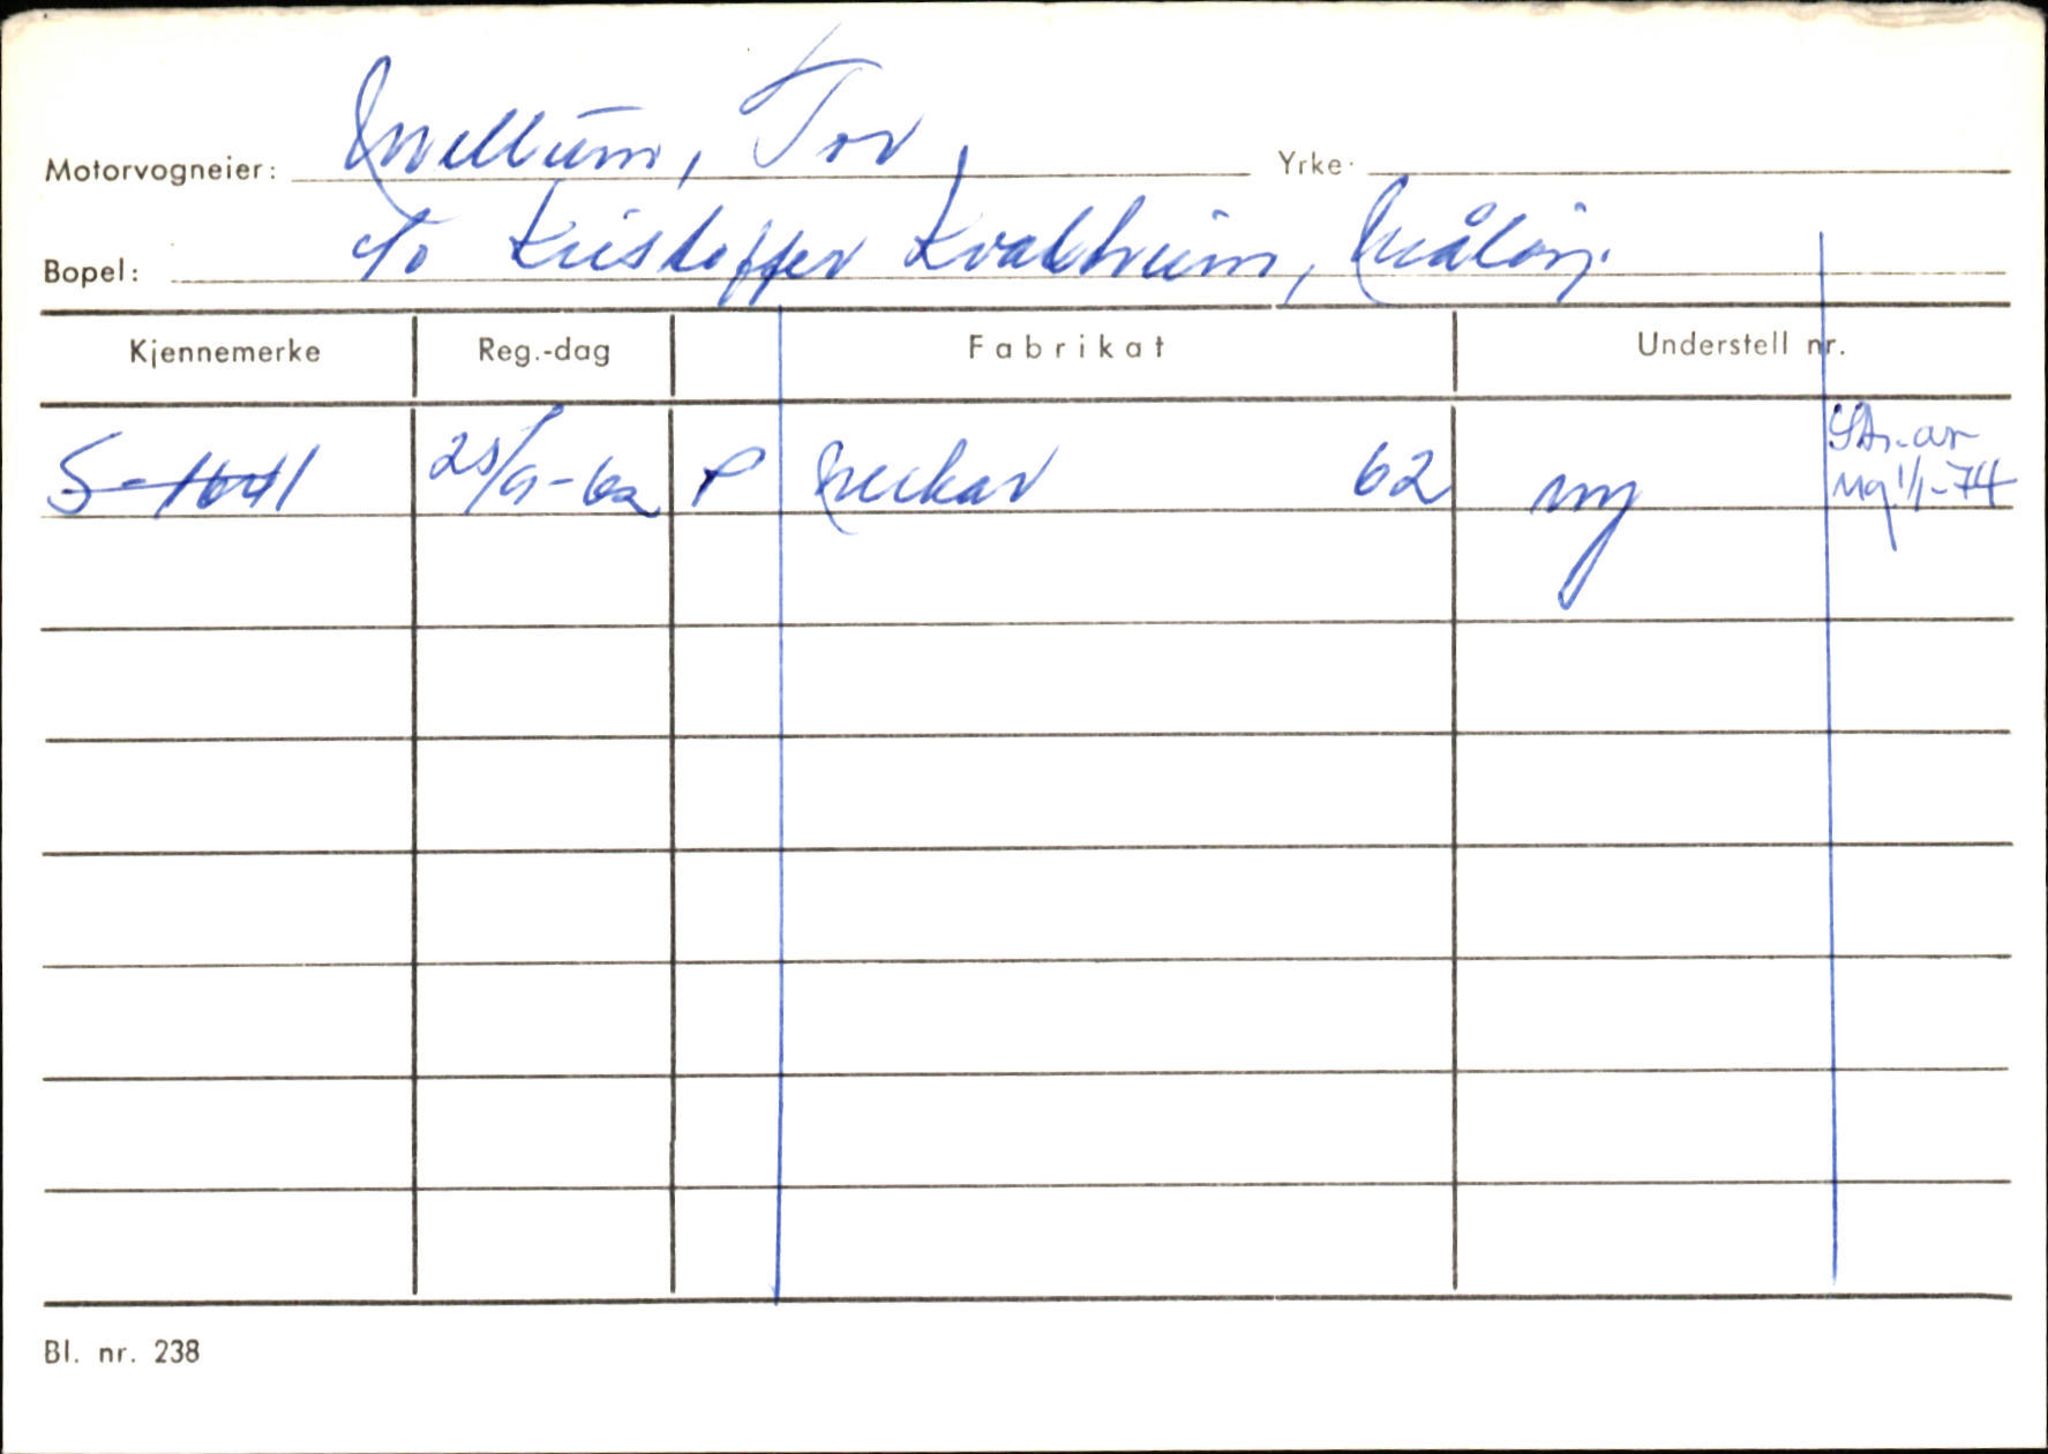 Motorvogneier: Mellum, Tor, Yrke:
Bopel: c/o Kristoffer Kvalheim, Måløy.
Kjennemerke Reg.-dag Fabrikat Understell nr.
S-11641 25/9-62 P Neckar 62 ny Str. av
ug. 1/1-74
Bl. nr. 238